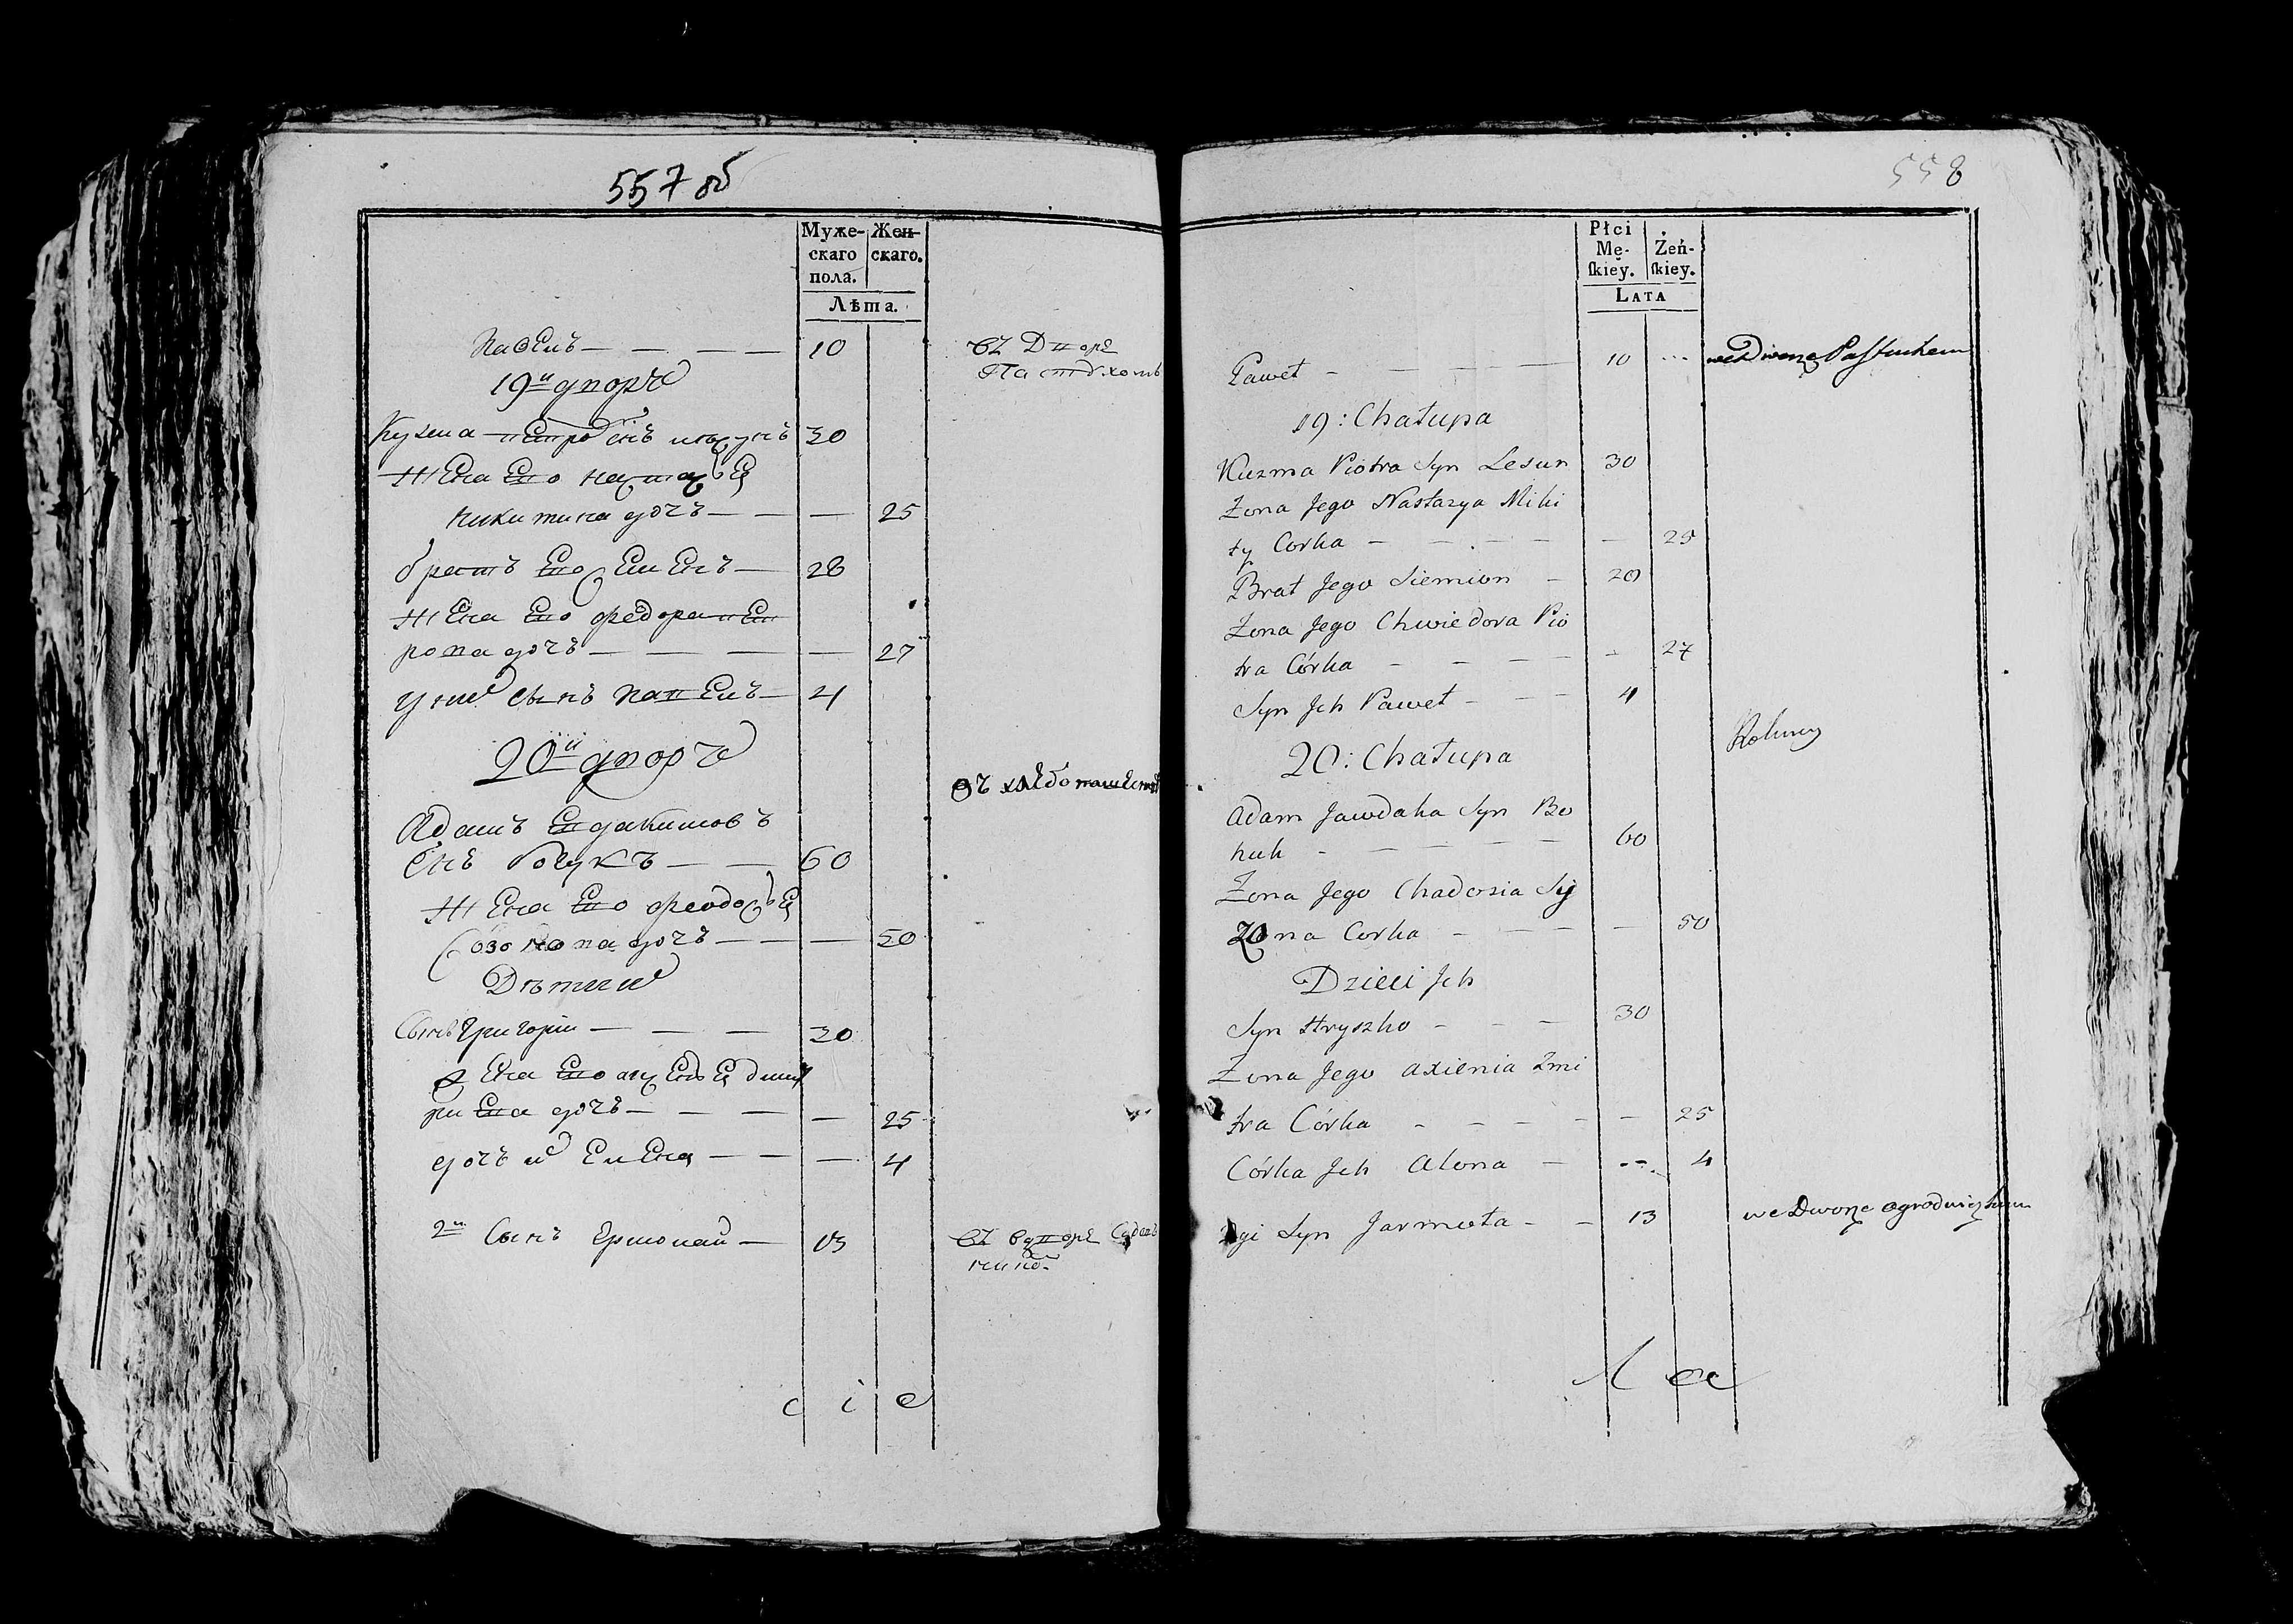 557 об
Муже-
скаго
пола.
Жен-
скаго.
Лѣта.
Павелъ — — — — 10
Въ Дворѣ
Пастухомъ
19й дворъ
Кузьма Петровъ 30
Жена Его Настасья
Никитина дочь — — — 25
братъ Его Семенъ — 28
Жена Его Федора Пет
рова дочь — — — — 27
У них сынъ Павелъ — 4
20й дворъ
Въ хлебопашествѣ
Адамъ Евдакимовъ
Сынъ — — 60
Жена Его Феодосья
Созонова дочь — — — 50
Дѣти их
Сынъ Григорiй — — — 30
Жена Его Аксенья Дмит
риева дочь — — — — 25
дочь их Елена — — — 4
2й Сынъ Ермолай — 13
Въ Дворѣ
с i е
558
Płci
Mę-
ſkiey.
Żeń-
ſkiey.
LATA
Paweł - — — — 10 ... we Dworze Pastuchem
19: Chałupa
Kuzma Piotra Syn Lesun 30
Żona Jego Nastazya Miki
ty Corka — — — — — 25
Brat Jego Siemion - 28
Żona Jego Chwiedora Pio
tra Córka - - - — - 27
Syn Jch Paweł - - - 4
20: Chałupa
Rolniczy
Adam Jawdaka Syn Bo
huk - — — — — 60
Żona Jego Chadosia Sy
zona Corka - - - - — 50
Dzieci Jch
Syn Hryszko - - - 30
Żona Jego Axienia Zmi
tra Córka - - - - - — 25
Córka Jch Alona — -- 4
2gi Syn Jarmoła - - 13 we Dworze ogrodniczkiem